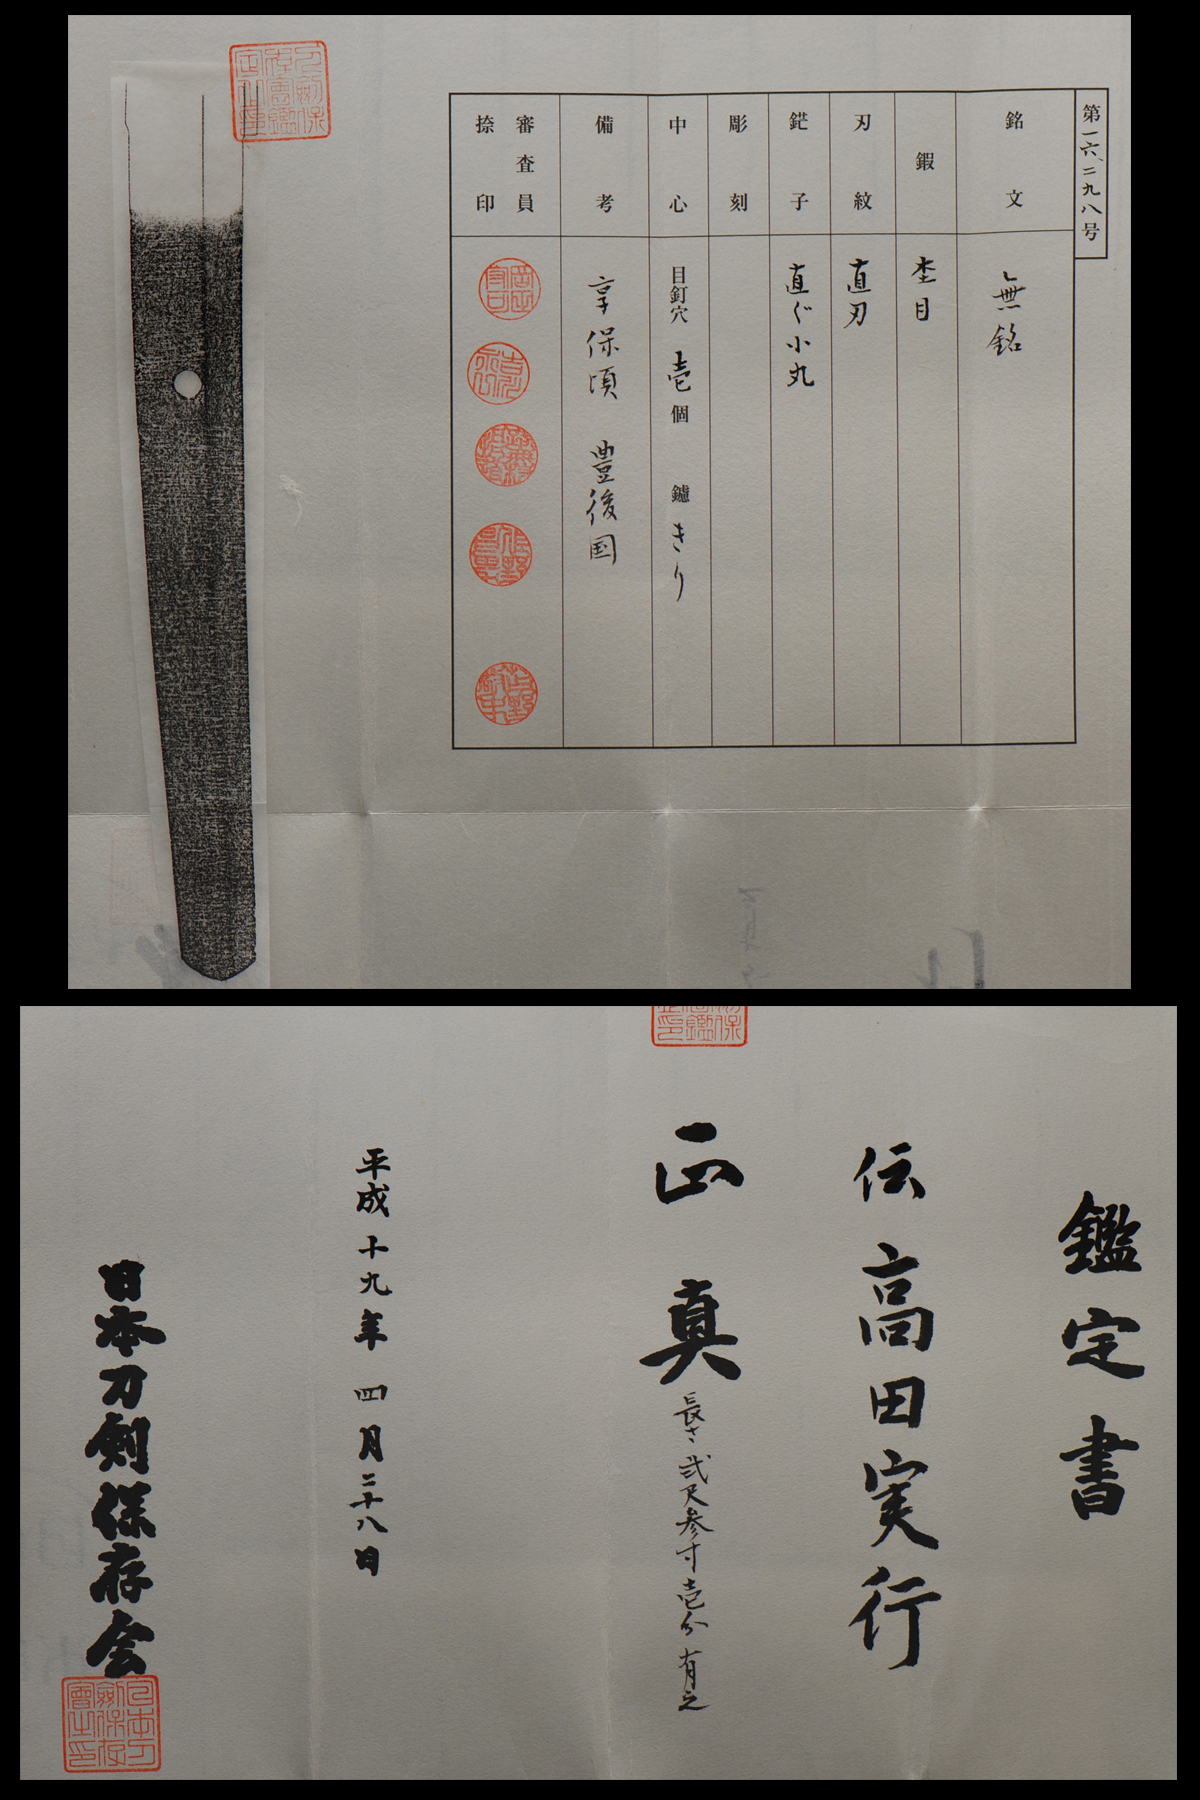 第一六、二九八号
銘文 無銘
鍜 杢目
刃紋 直刃
鋩子 直ぐ小丸
彫刻
中心 目釘穴 壱個 鑢 きり
備考 享保頃 豊後国
審査員
捺印
鑑定書
伝 高田実行
正真 長さ弐尺参寸壱分有之
平成十九年四月二十八日
日本刀剣保存会